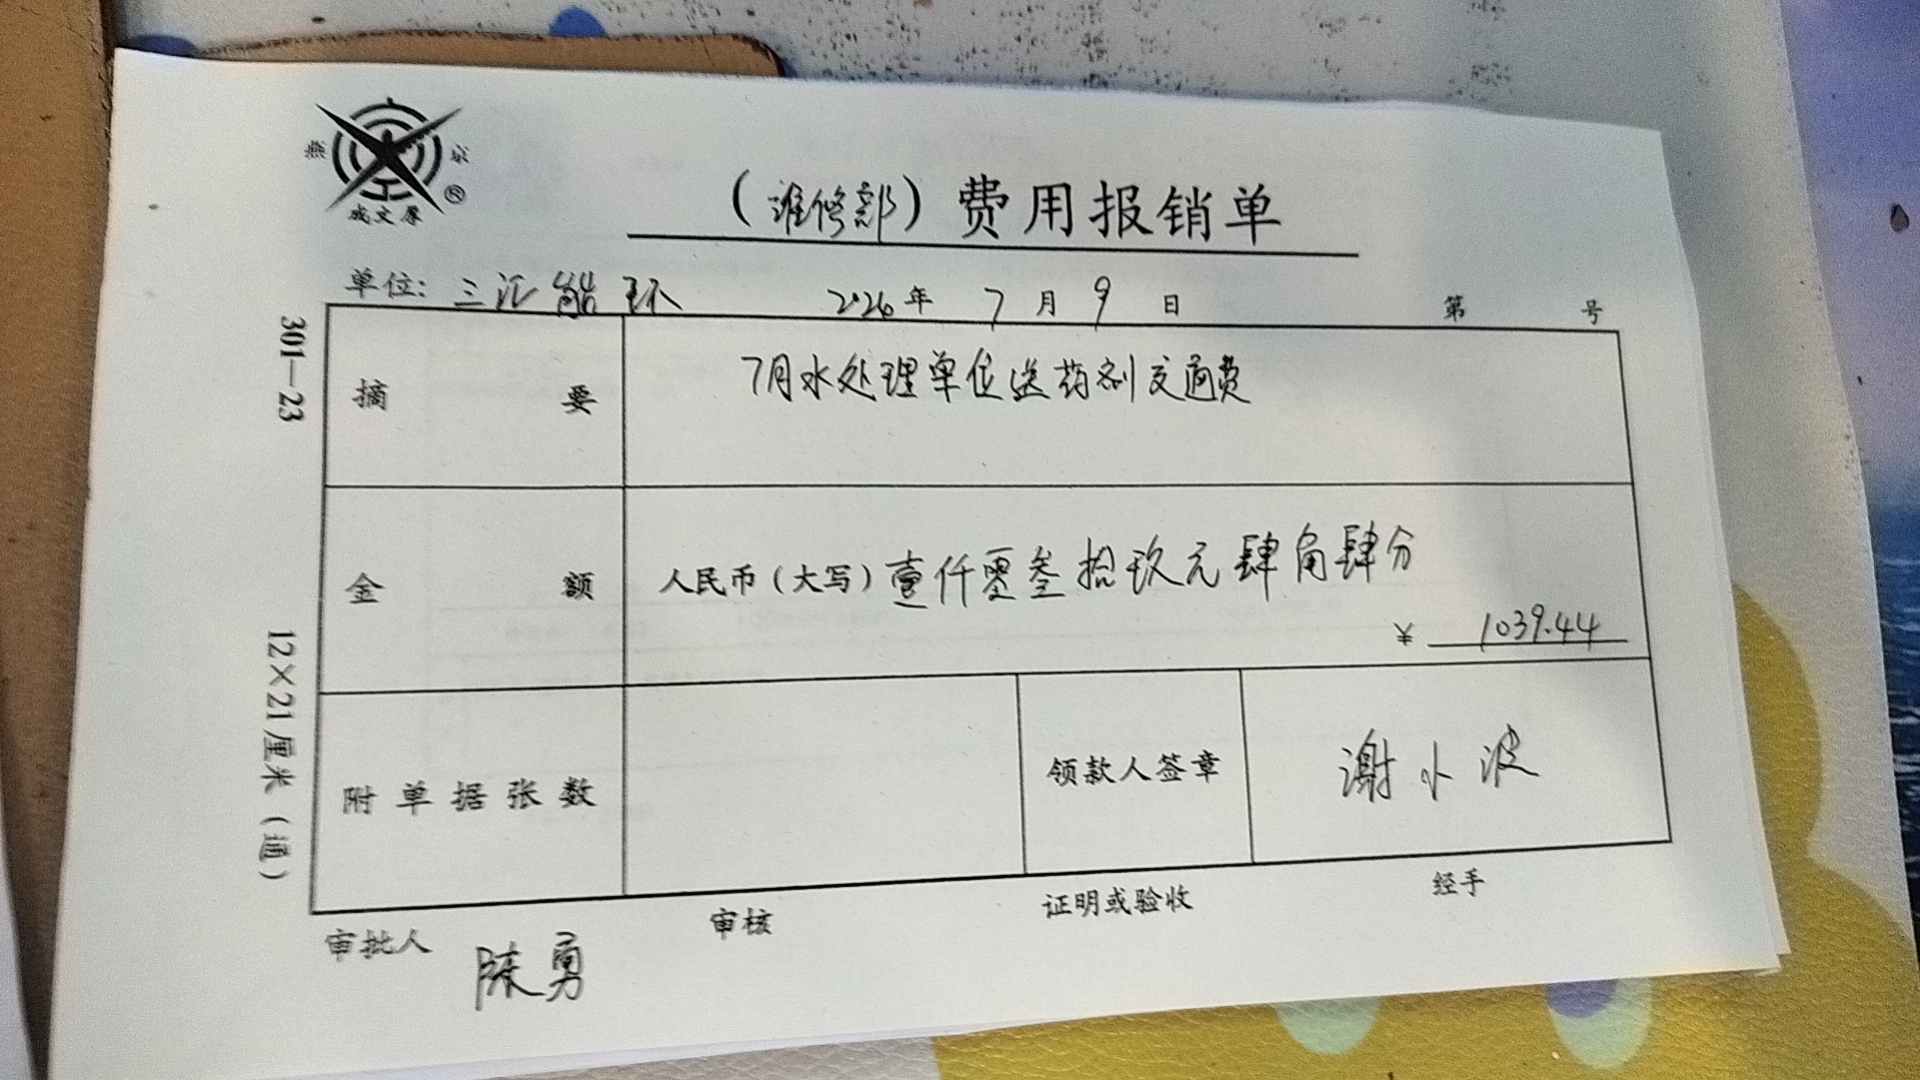 燕 京
®
成文厚
（维修部）费用报销单
单位：三汇能环 2026年 7月 9日 第 号
301—23
12×21厘米（通）
摘要 7月水处理单位送药剂交通费
金额 人民币（大写）壹仟零叁拾玖元肆角肆分
¥ 1039.44
附单据张数 领款人签章 谢小波
审批人 陈勇 审核 证明或验收 经手